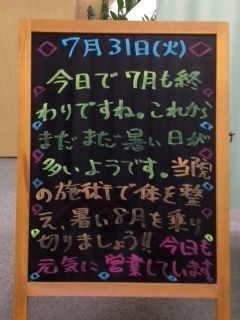 7月31日(火)
今日で7月も終
わりですね。これから
まだまだ暑い日が
多いようです。当院
の施術で体を整
え、暑い8月を乗り
切りましょう!!今日も
元気に営業しています